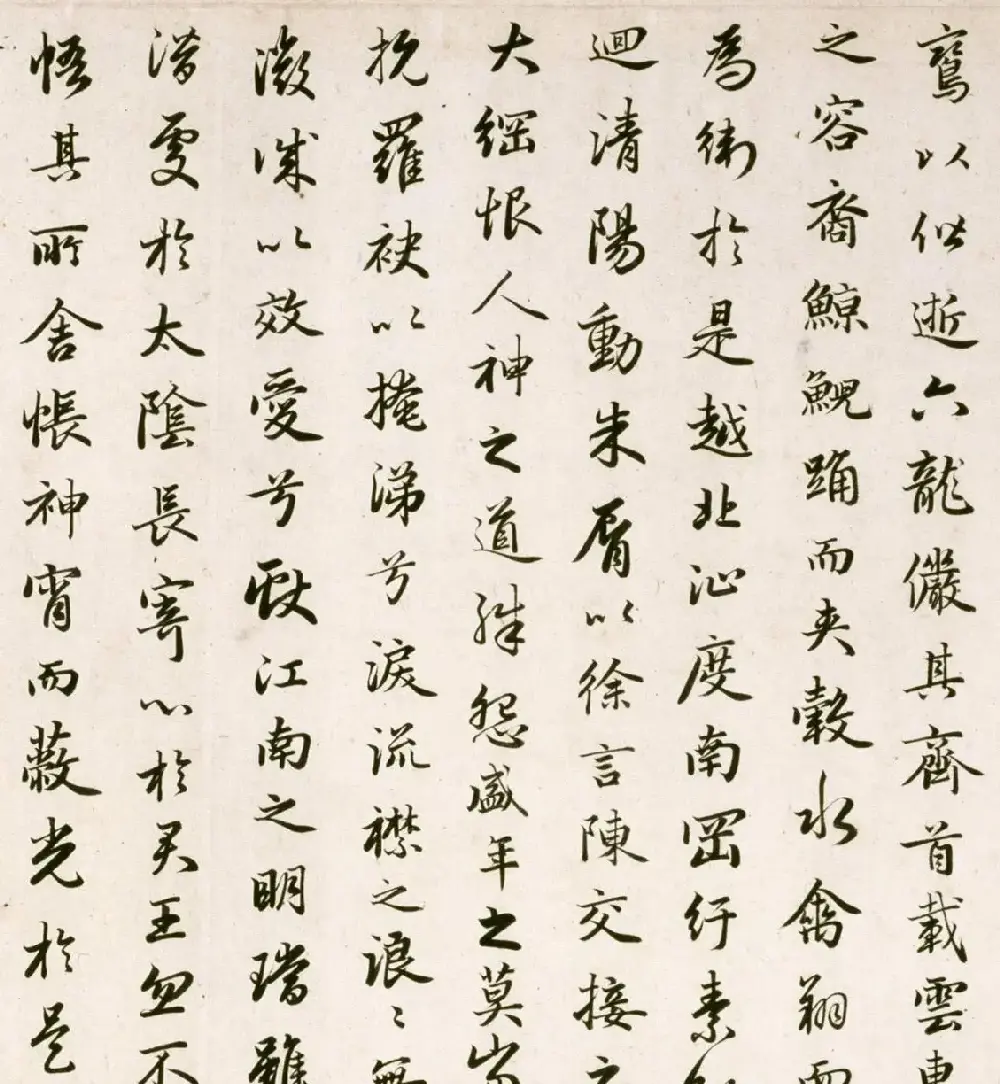 鸞以偕逝六龍儼其齊首載雲車
之容裔鯨鯢踊而夾轂水禽翔而
為衛於是越北沚度南岡紆素
迴清陽動朱脣以徐言陳交接之
大綱恨人神之道殊怨盛年之莫當
抗羅袂以掩涕兮淚流襟之浪〻無
微誠以效愛兮獻江南之明璫雖
潛處於太陰長寄心於君王忽不
悟其所舍悵神宵而蔽光於是